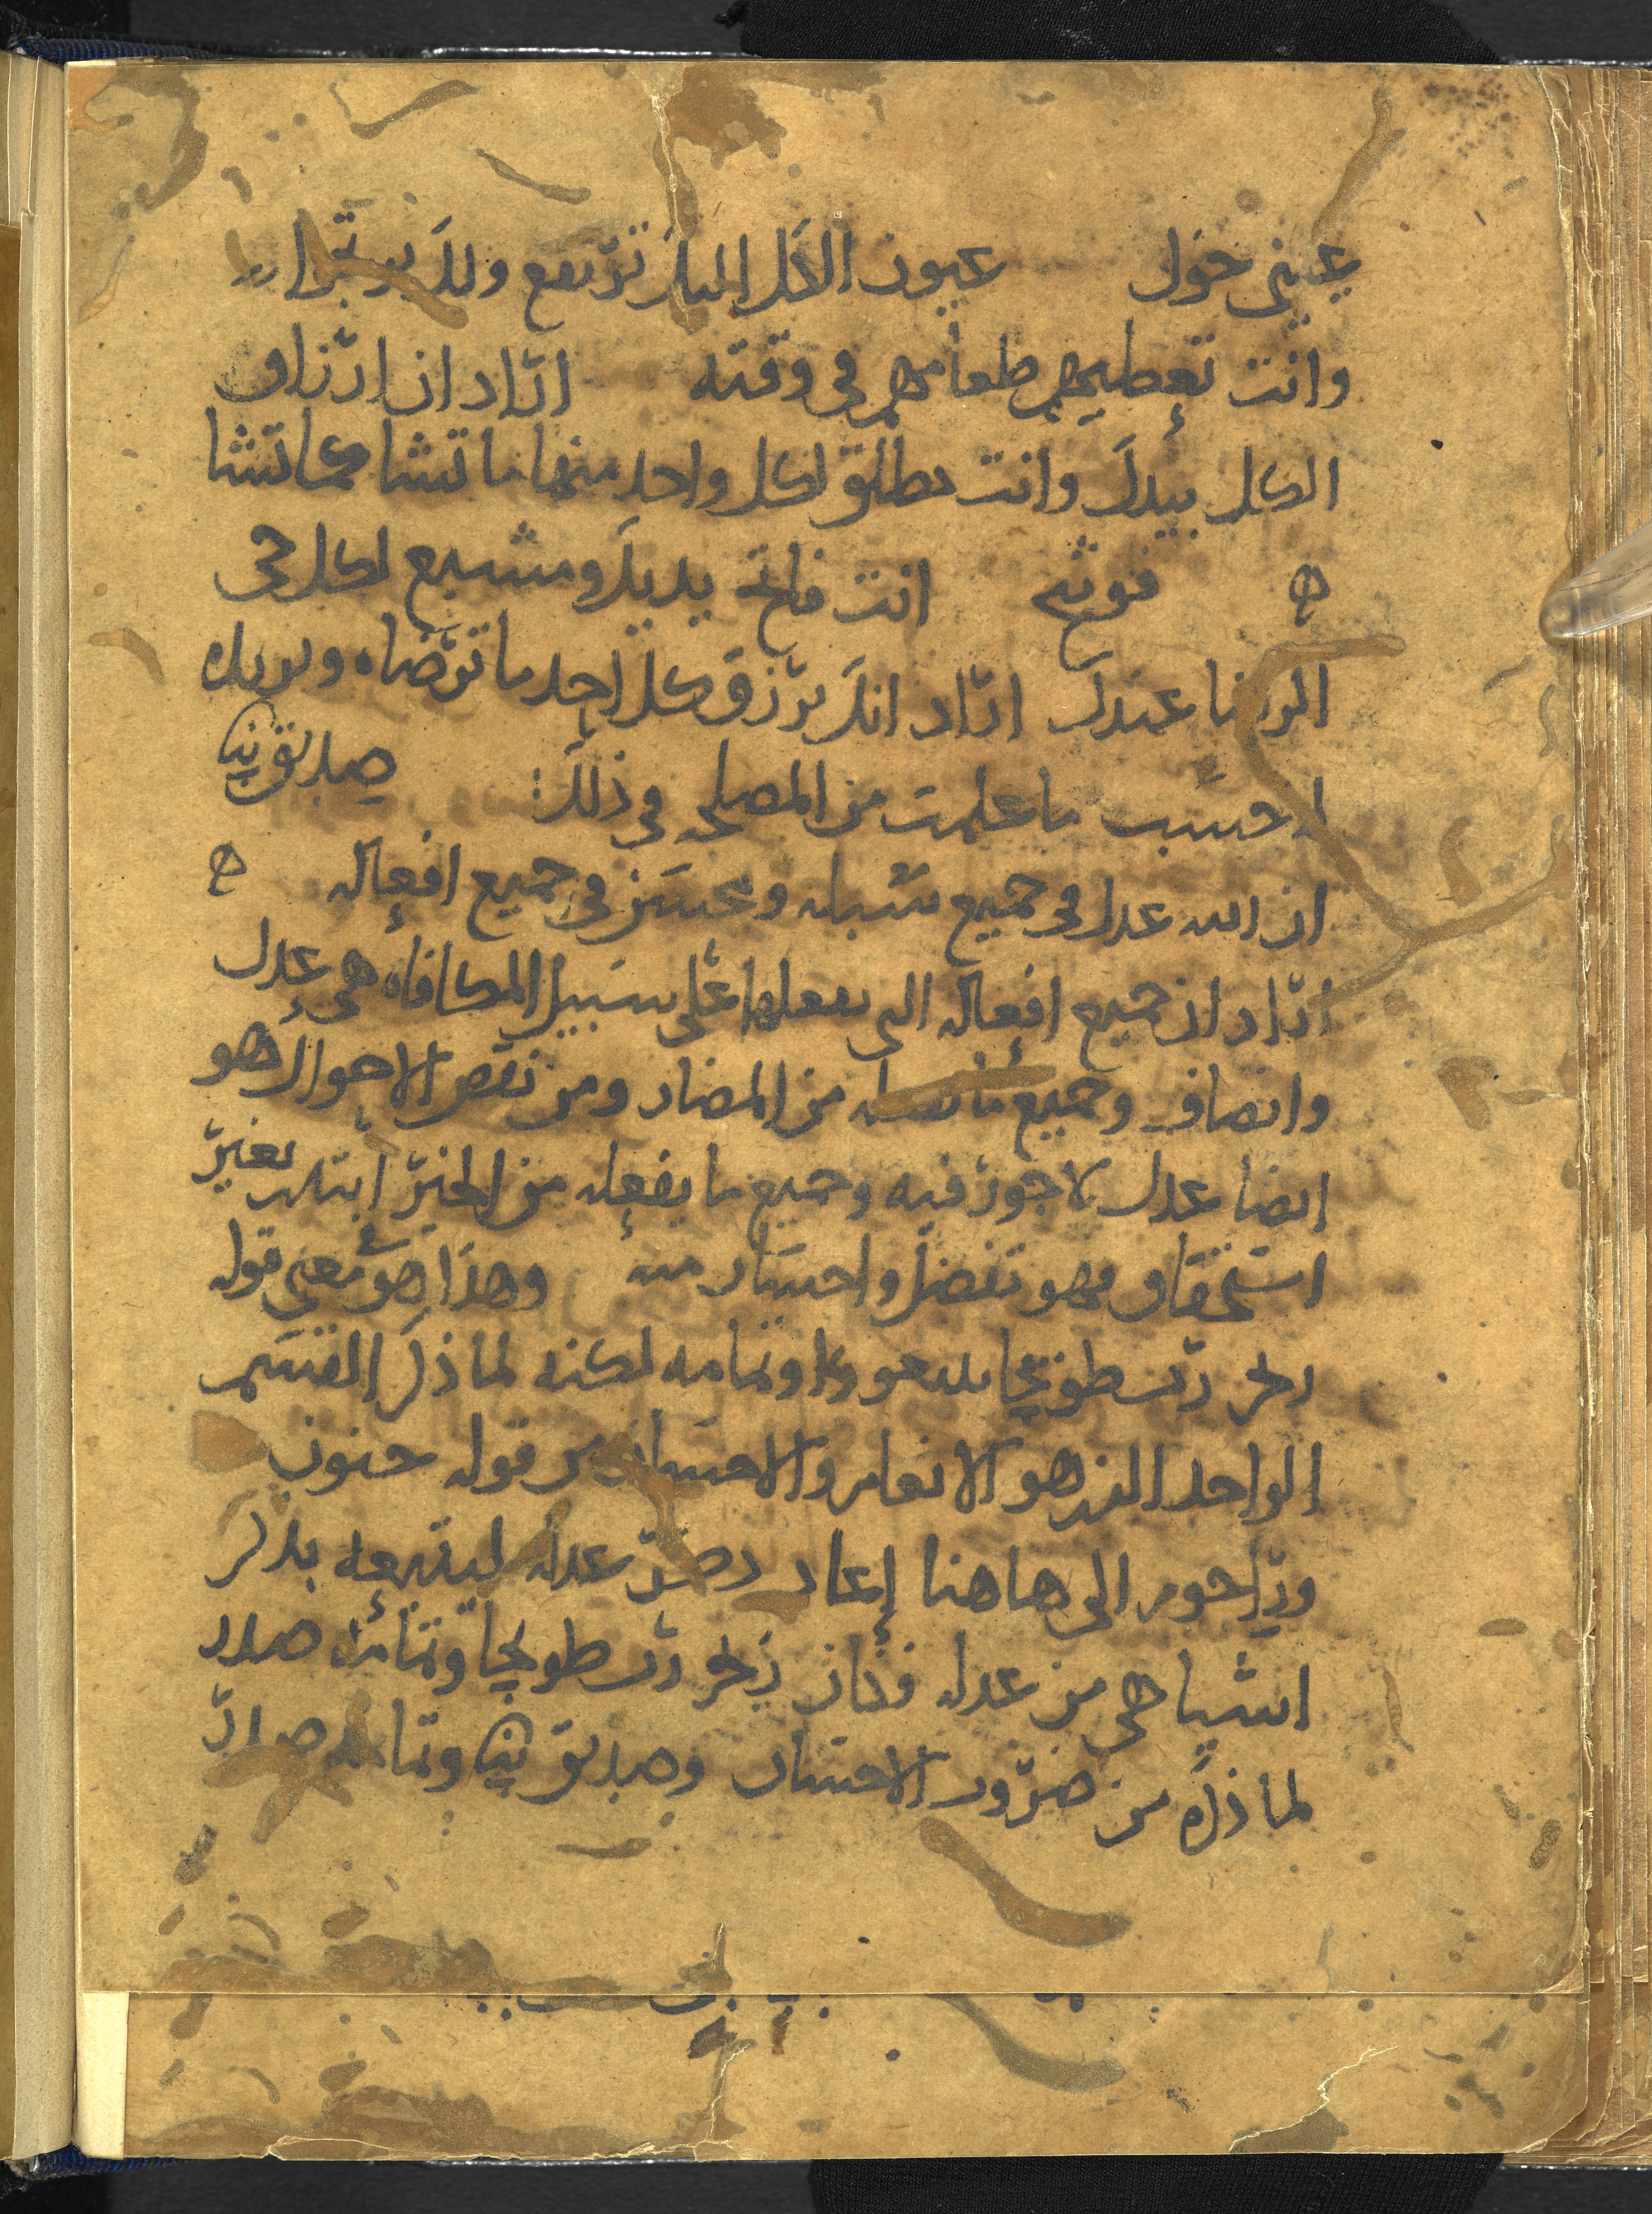 عيني خول عيون الكل اليك ترتفع ولك يرتجوا
وانت تعطيهم طعامهم في وقته اراد ان ارزاق
الكل بيدك وانت تطلق لكل واحد منها ما تشا كما تشا
فوثح انت فاتح يديك ومشبع لكل حي
الرضا عندك اراد انك ترزق كل احد ما ترضاه وتريده
له حسب ما علمت من المصلحه في ذلك صديق يي
ان الله عدل في جميع سبله ومحسن في جميع افعاله
اراد ان جميع افعاله التي يفعلها على سبيل المكافاه هي عدل
وانصاف وجميع ما من المضار ومن نقص الاحوال هو
ايضا عدل لا جور فيه وجميع ما يفعله من الخير ابتدا بغير
استحقاق فهو تفضل واحسان منه وهذا هو معنى قوله
زخر رب طوبخا يبيعو وتمامه لكنه لما ذكر القسم
الواحد الذي هو الانعام والاحسان من قوله حنون
وراحوم الى هاهنا اعاد عدله ليتبعه بذكر
اشيا هي من عدله فكان زخر رب طوبخا وتمامه
لما ذكره من ضروب الاحسان وصديق يي وتمامه